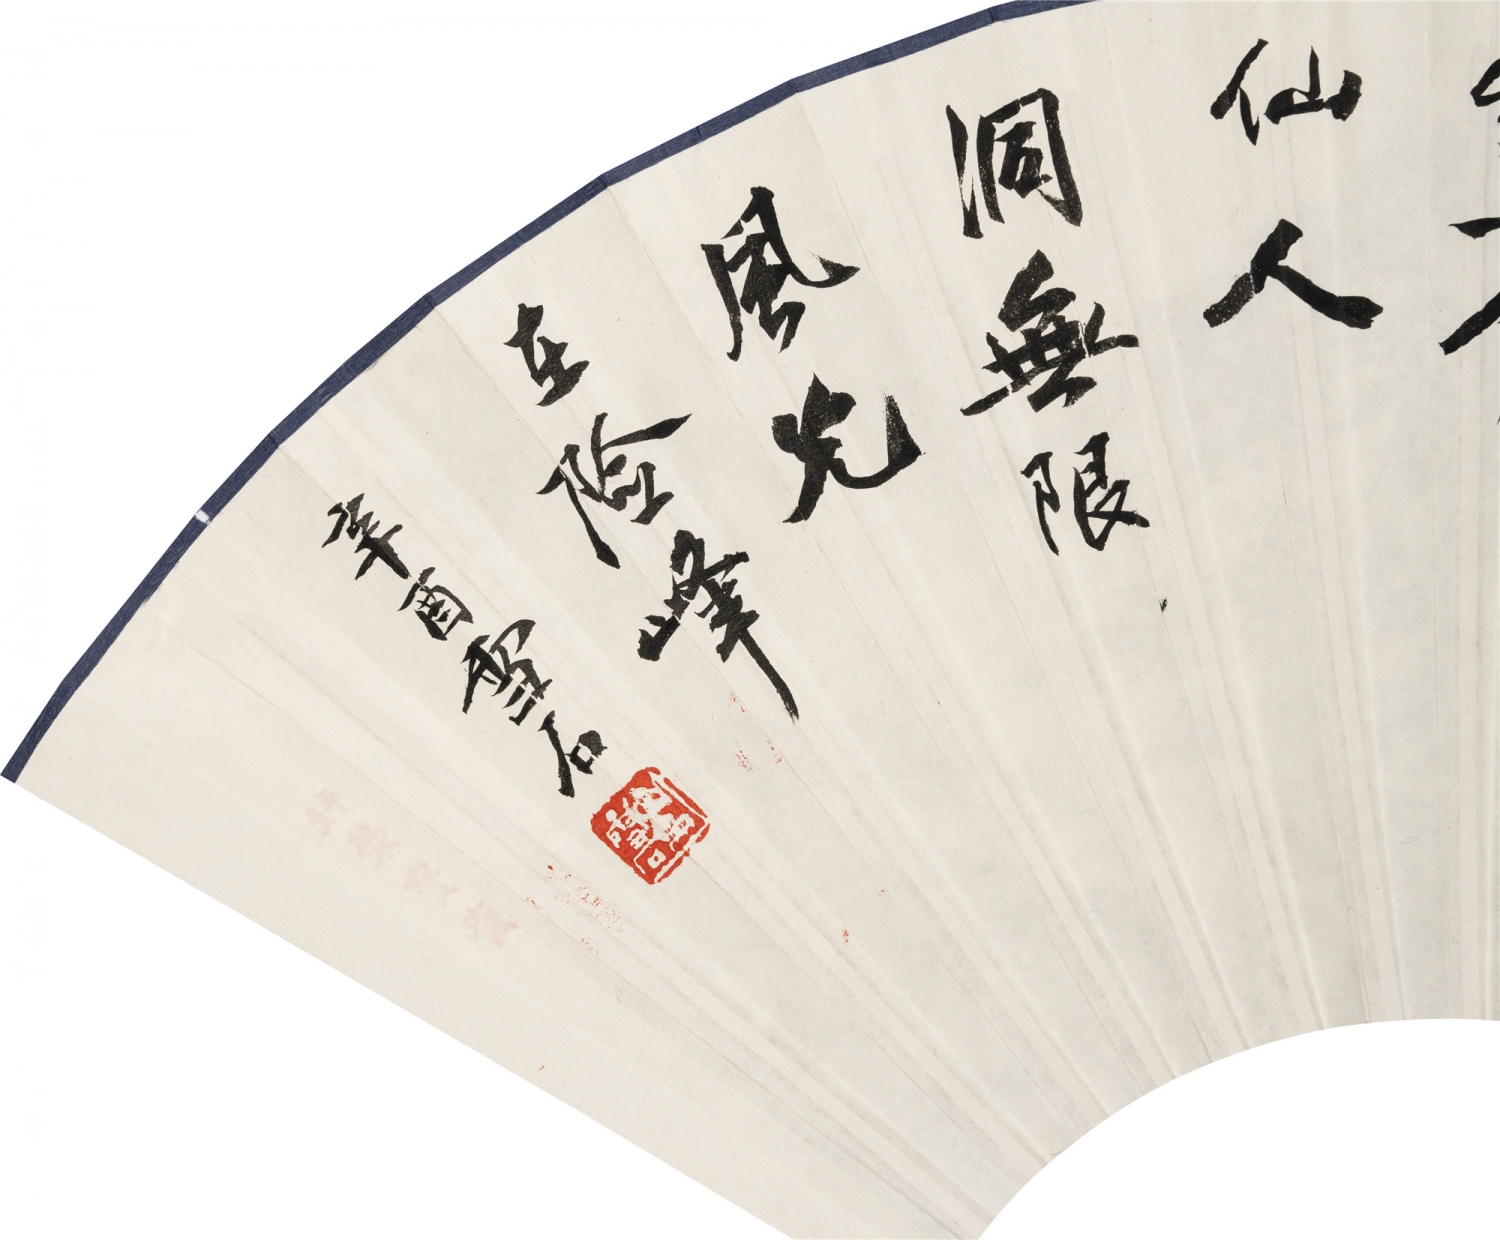 仙人
洞無限
風光
在险峰
辛酉雪石